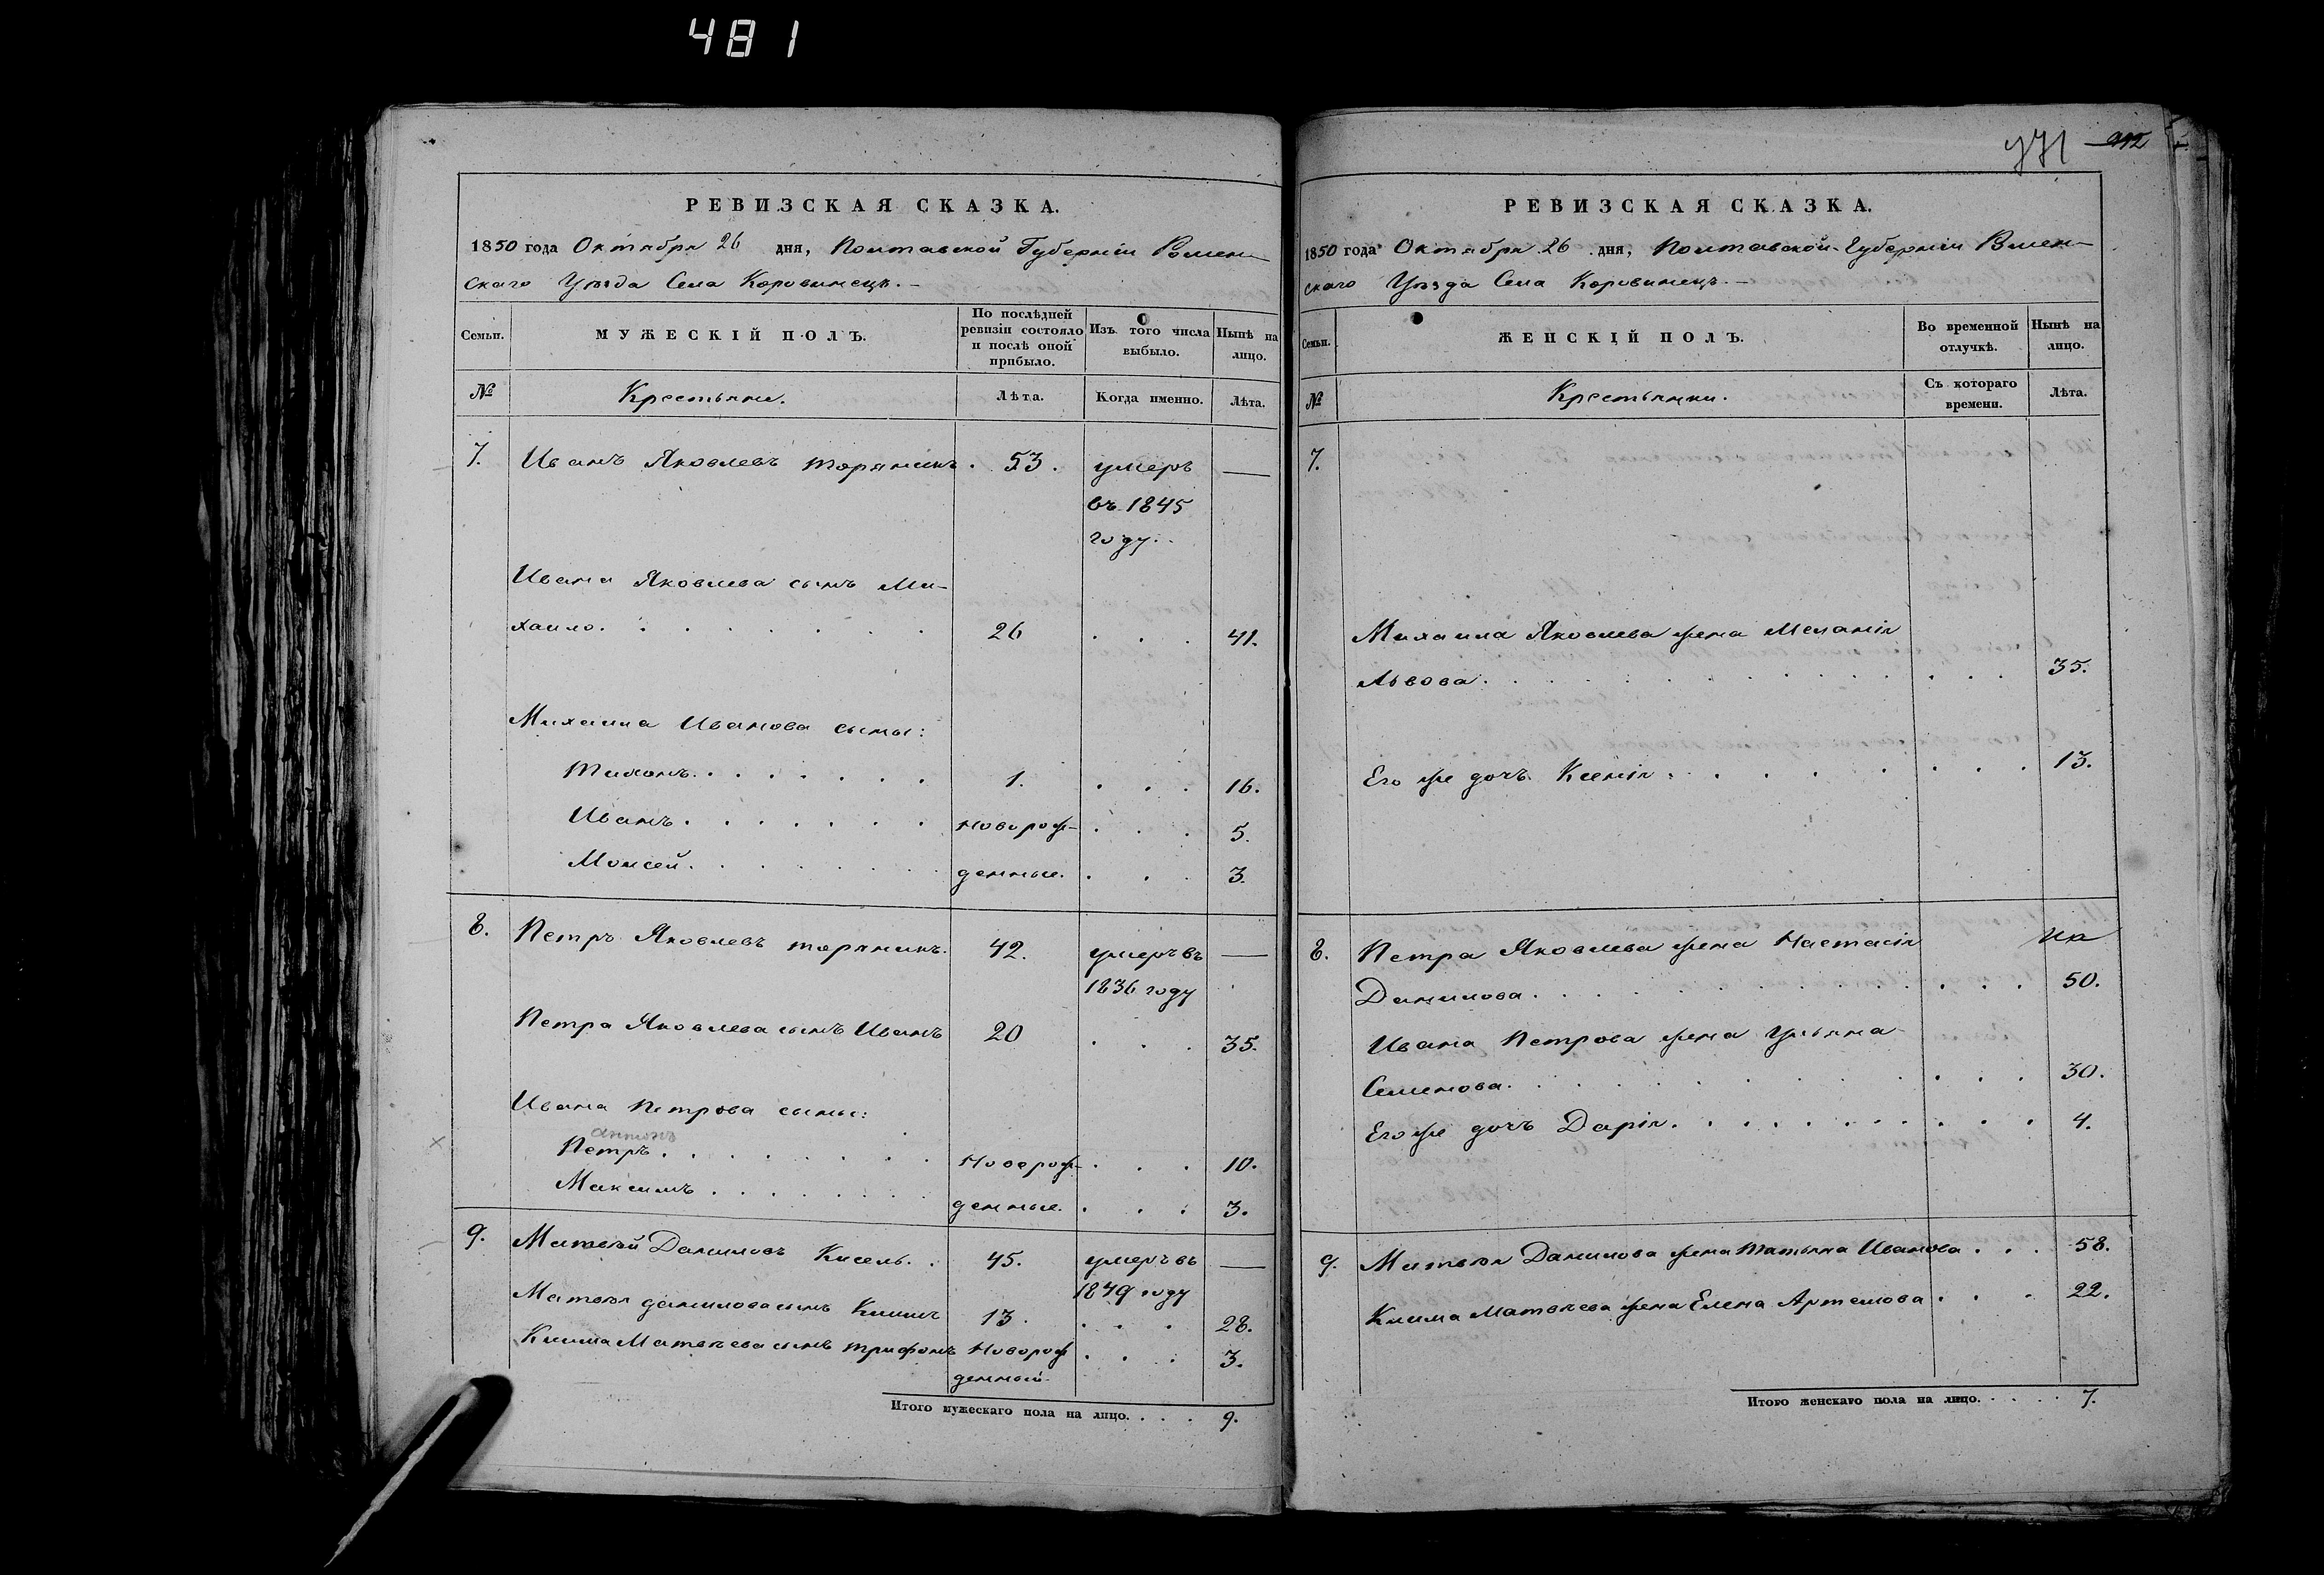 481
РЕВИЗСКАЯ СКАЗКА.
1850 года Октября 26 дня, Полтавской Губерніи Ромен-
скаго Уѣзда Села Коровинецъ.-
Семьи.
МУЖЕСКІЙ ПОЛЪ.
По послѣдней
ревизіи состояло
и послѣ оной
прибыло.
Изъ того числа
выбыло.
Нынѣ на
лицо.
№
Крестьяне.
Лѣта.
Когда именно.
Лѣта.
7. Иванъ Яковлевъ Торяникъ. 53. умеръ —
въ 1845
году.
Ивана Яковлева сынъ Ми-
хаило. 26 41.
Михаила Иванова сыны:
Тихонъ. 1. 16.
Иванъ. Новорож- 5.
Моисей. денные. 3.
8. Петръ Яковлевъ Торяникъ. 42. умеръ въ —
1836 году
Петра Яковлева сынъ Иванъ 20 35.
Ивана Петрова сыны:
Антонъ
Петръ. Новорож- 10.
Максимъ. денные. 3.
9. Матвѣй Даниловъ Кисель. 45. умеръ въ —
1849 году
Матвѣя Данилова сынъ Климъ 13. 28.
Клима Матвѣева сынъ Трифонъ Новорож 3.
денный
Итого мужескаго пола на лицо. 9.
771 912
РЕВИЗСКАЯ СКАЗКА.
1850 года Октября 26 дня, Полтавской Губерніи Ромен-
скаго Уѣзда Села Коровинецъ.-
Семьи.
ЖЕНСКІЙ ПОЛЪ.
Во временной
отлучкѣ.
Нынѣ на
лицо.
№
Крестьянки.
Съ котораго
времени.
Лѣта.
7.
Михаила Яковлева жена Меланія
Львова. 35.
Его же дочь Ксенія. 13.
8. Петра Яковлева жена Настасія
Данилова. 50.
Ивана Петрова жена Ульяна
Семенова. 30.
Его же дочь Дарія. 4.
9. Матвѣя Данилова жена Татьяна Иванова. 58.
Клима Матвѣева жена Елена Артемова. 22.
Итого женскаго пола на лицо. 7.